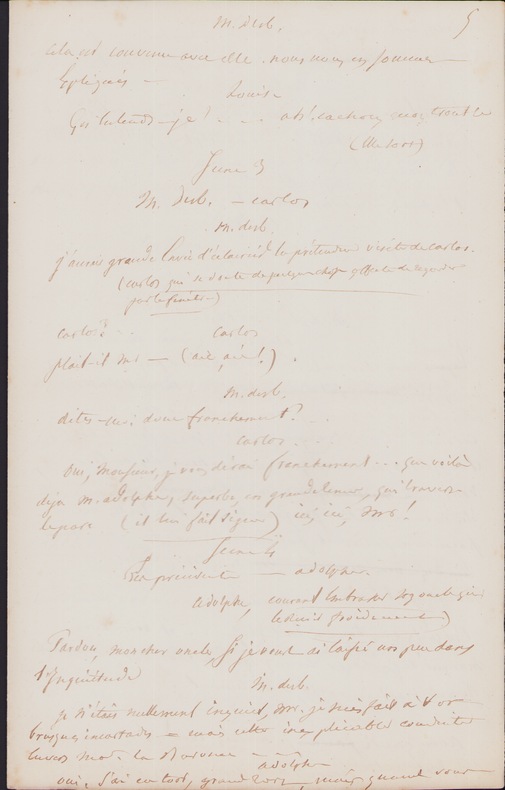 M. Desb. 5
cela est convenu avec elle. nous nous en sommes
expliqués —
Louise
Qu'entends-je! . . . ah! cachons mon trouble
(elle sort)
Scene 3
M. Desb. — carlos
M. desb.
j'aurais grande envie d'éclaircir la prétendue visite de carlos.
(carlos qui se doute de quelque chose affecte de regarder
par la fenêtre)
carlos? . .
carlos
plait-il mr — (aïe, aïe!) .
M. desb.
dites-moi donc franchement? . .
carlos . . .
oui, monsieur, je vous dirai franchement . . . que voilà
déja M. adolphe, superbe, en grande tenue, qui traverse
le parc (il lui fait signe) ici, ici, Mr!
Scene 4
Les précédents — adolphe.
adolphe, courant embrasser son oncle qui
le reçoit froidement)
Pardon, mon cher oncle, si je vous ai laissé un peu dans
l'inquiétude
M. desb.
je n'étais nullement inquiet, Mr. je suis fait à vos
brusques incartades — mais cette inexplicable conduite
envers Mde la Baronne —
adolphe
oui, j'ai eu tort, grand tort, mais quand vous